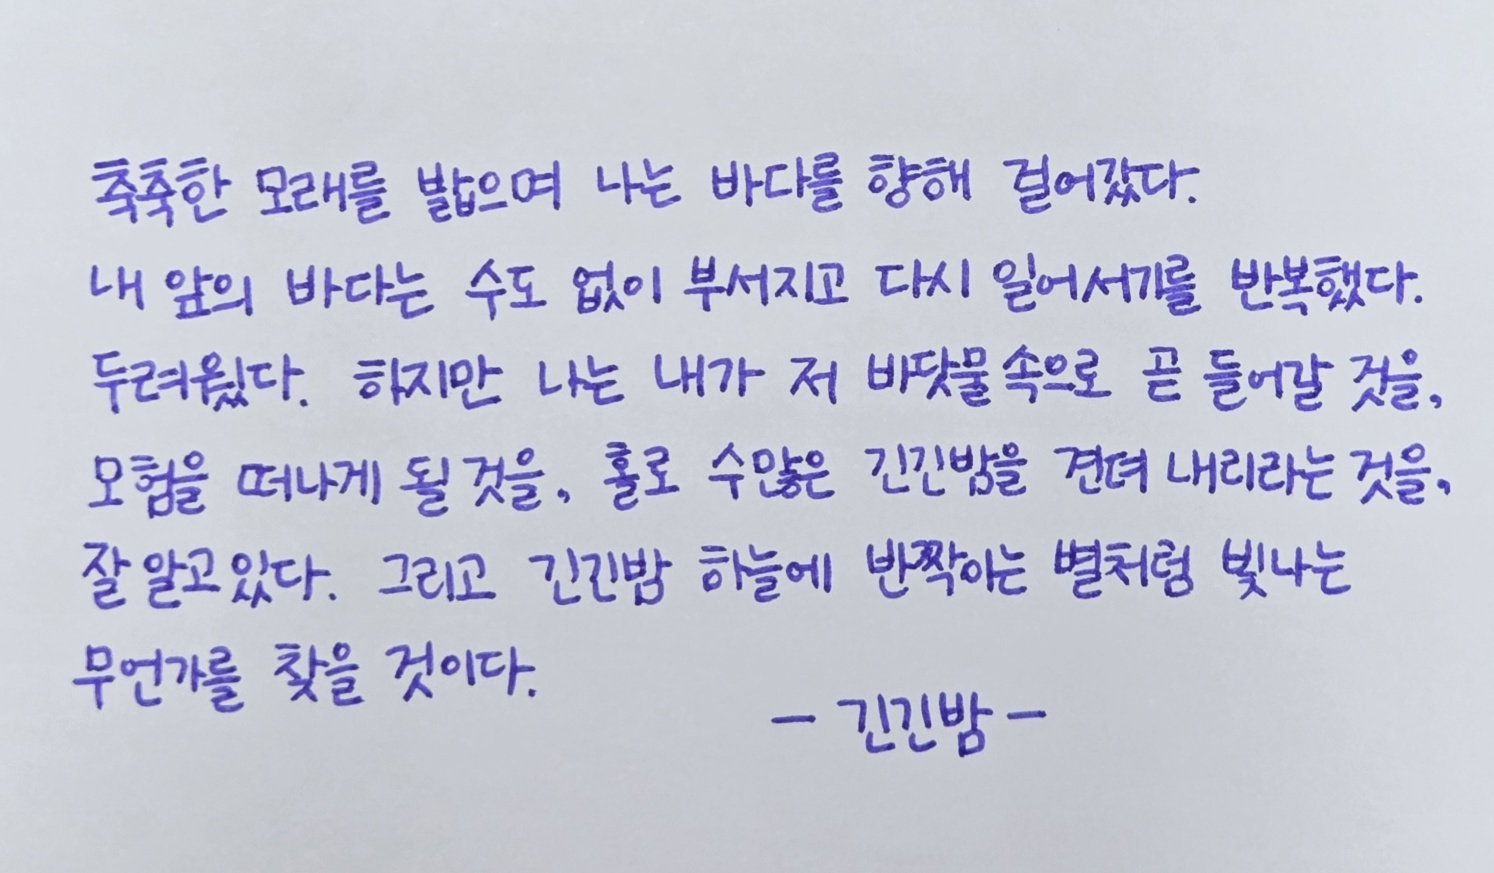 축축한 모래를 밟으며 나는 바다를 향해 걸어갔다.
내 앞의 바다는 수도 없이 부서지고 다시 일어서기를 반복했다.
두려웠다. 하지만 나는 내가 저 바닷물 속으로 곧 들어갈 것을,
모험을 떠나게 될 것을, 홀로 수많은 긴긴밤을 견뎌 내리라는 것을,
잘 알고 있다. 그리고 긴긴밤 하늘에 반짝이는 별처럼 빛나는
무언가를 찾을 것이다.
- 긴긴밤 -